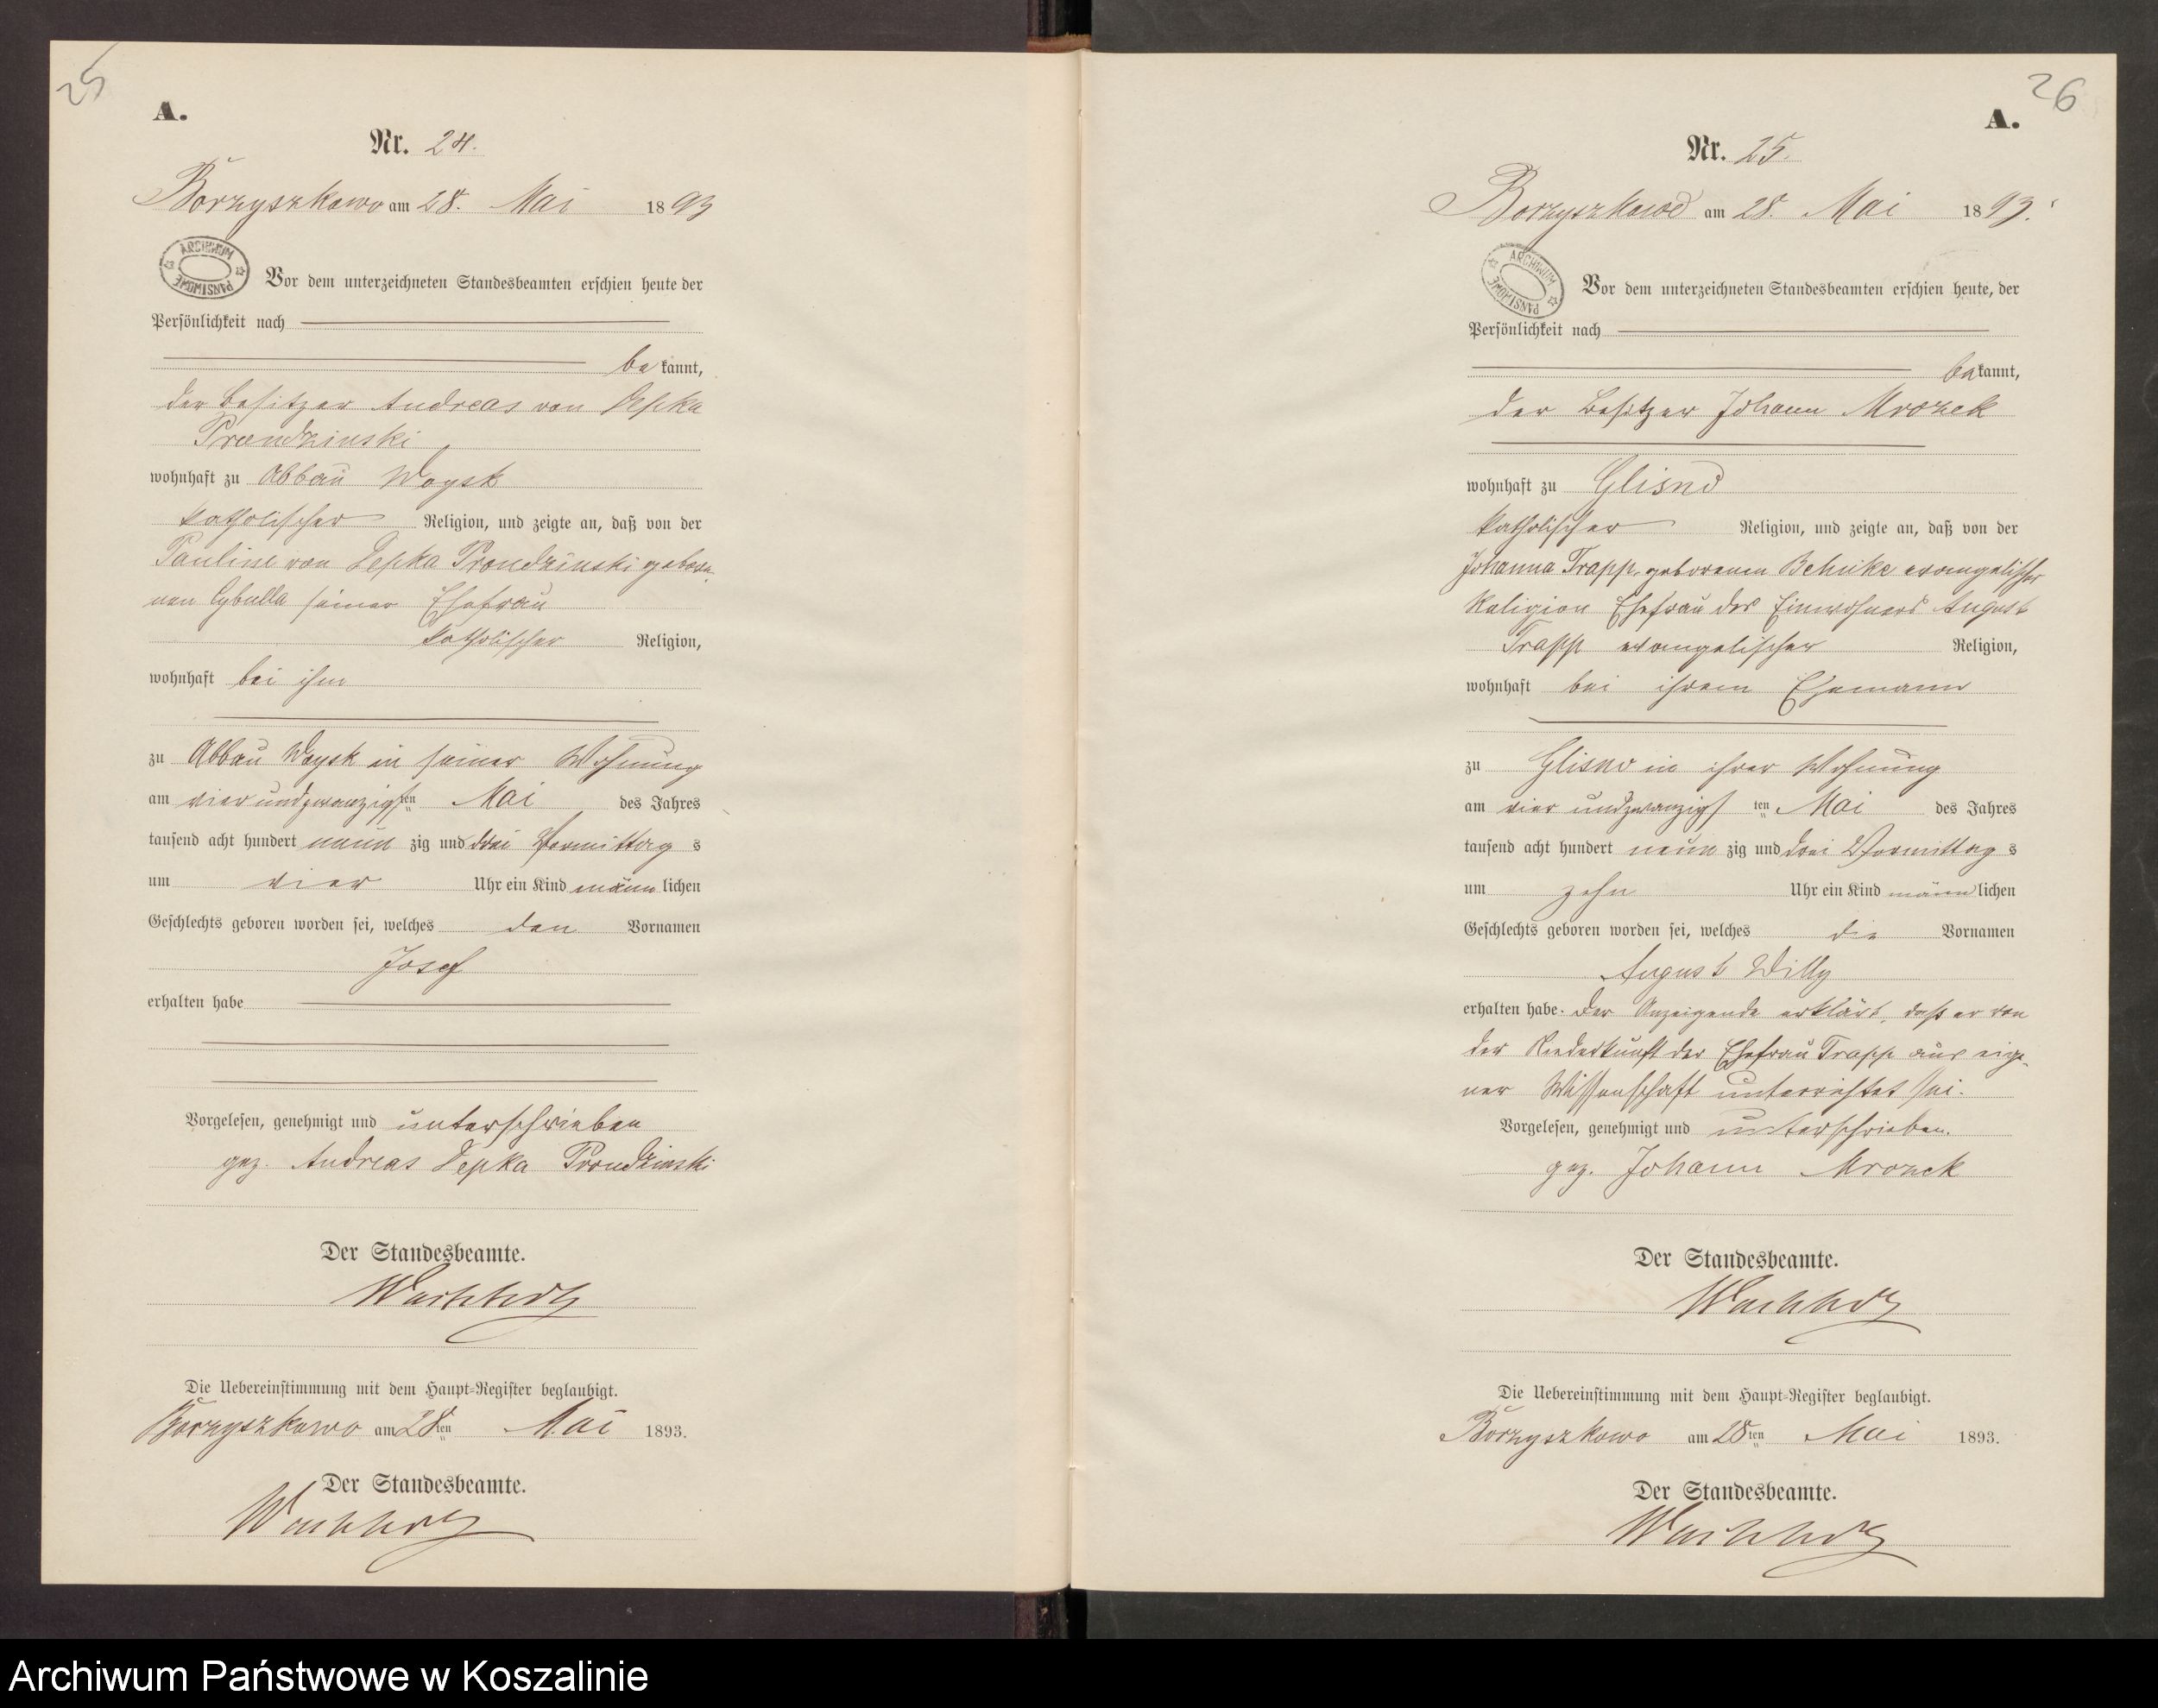 25
A.
Nr. 24.
Borzyszkowo am 28. Mai 1893
ARCHIWUM PAŃSTWOWE
Vor dem unterzeichneten Standesbeamten erschien heute der
Persönlichkeit nach
be kannt,
der Besitzer Andreas von Depka
Prondzinski
wohnhaft zu Abbau Woysk
katholischer Religion, und zeigte an, daß von der
Pauline von Depka Prondzinski gebore
nen Cybulla seiner Ehefrau
katholischer Religion,
wohnhaft bei ihm
zu Abbau Woysk in seiner Wohnung
am vier undzwanzigsten Mai des Jahres
tausend acht hundert neun zig und drei Vormittag s
um vier Uhr ein Kind männ lichen
Geschlechts geboren worden sei, welches den Vornamen
Josef
erhalten habe
Vorgelesen, genehmigt und unterschrieben
gez. Andreas Depka Prondzinski
Der Standesbeamte.
Wachholz
Die Uebereinstimmung mit dem Haupt-Register beglaubigt.
Borzyszkowo am 28ten Mai 1893.
Der Standesbeamte.
Wachholz
26
A.
Nr. 25.
Borzyszkowo am 28. Mai 1893.
ARCHIWUM PAŃSTWOWE
Vor dem unterzeichneten Standesbeamten erschien heute, der
Persönlichkeit nach
be kannt,
der Besitzer Johann Mrozek
wohnhaft zu Glisno
katholischer Religion, und zeigte an, daß von der
Johanna Trapp, geborenen Behnke evangelischer
Religion Ehefrau des Einwohners August
Trapp evangelischer Religion,
wohnhaft bei ihrem Ehemann
zu Glisno in ihrer Wohnung
am vier undzwanzigs ten Mai des Jahres
tausend acht hundert neun zig und drei Vormittag s
um zehn Uhr ein Kind männ lichen
Geschlechts geboren worden sei, welches die Vornamen
August Willy
erhalten habe. Der Anzeigende erklärt, daß er von
der Niederkunft der Ehefrau Trapp aus eige-
ner Wissenschaft unterrichtet sei.
Vorgelesen, genehmigt und unterschrieben.
gez. Johann Mrozek
Der Standesbeamte.
Wachholz
Die Uebereinstimmung mit dem Haupt-Register beglaubigt.
Borzyszkowo am 28ten Mai 1893.
Der Standesbeamte.
Wachholz
Archiwum Państwowe w Koszalinie